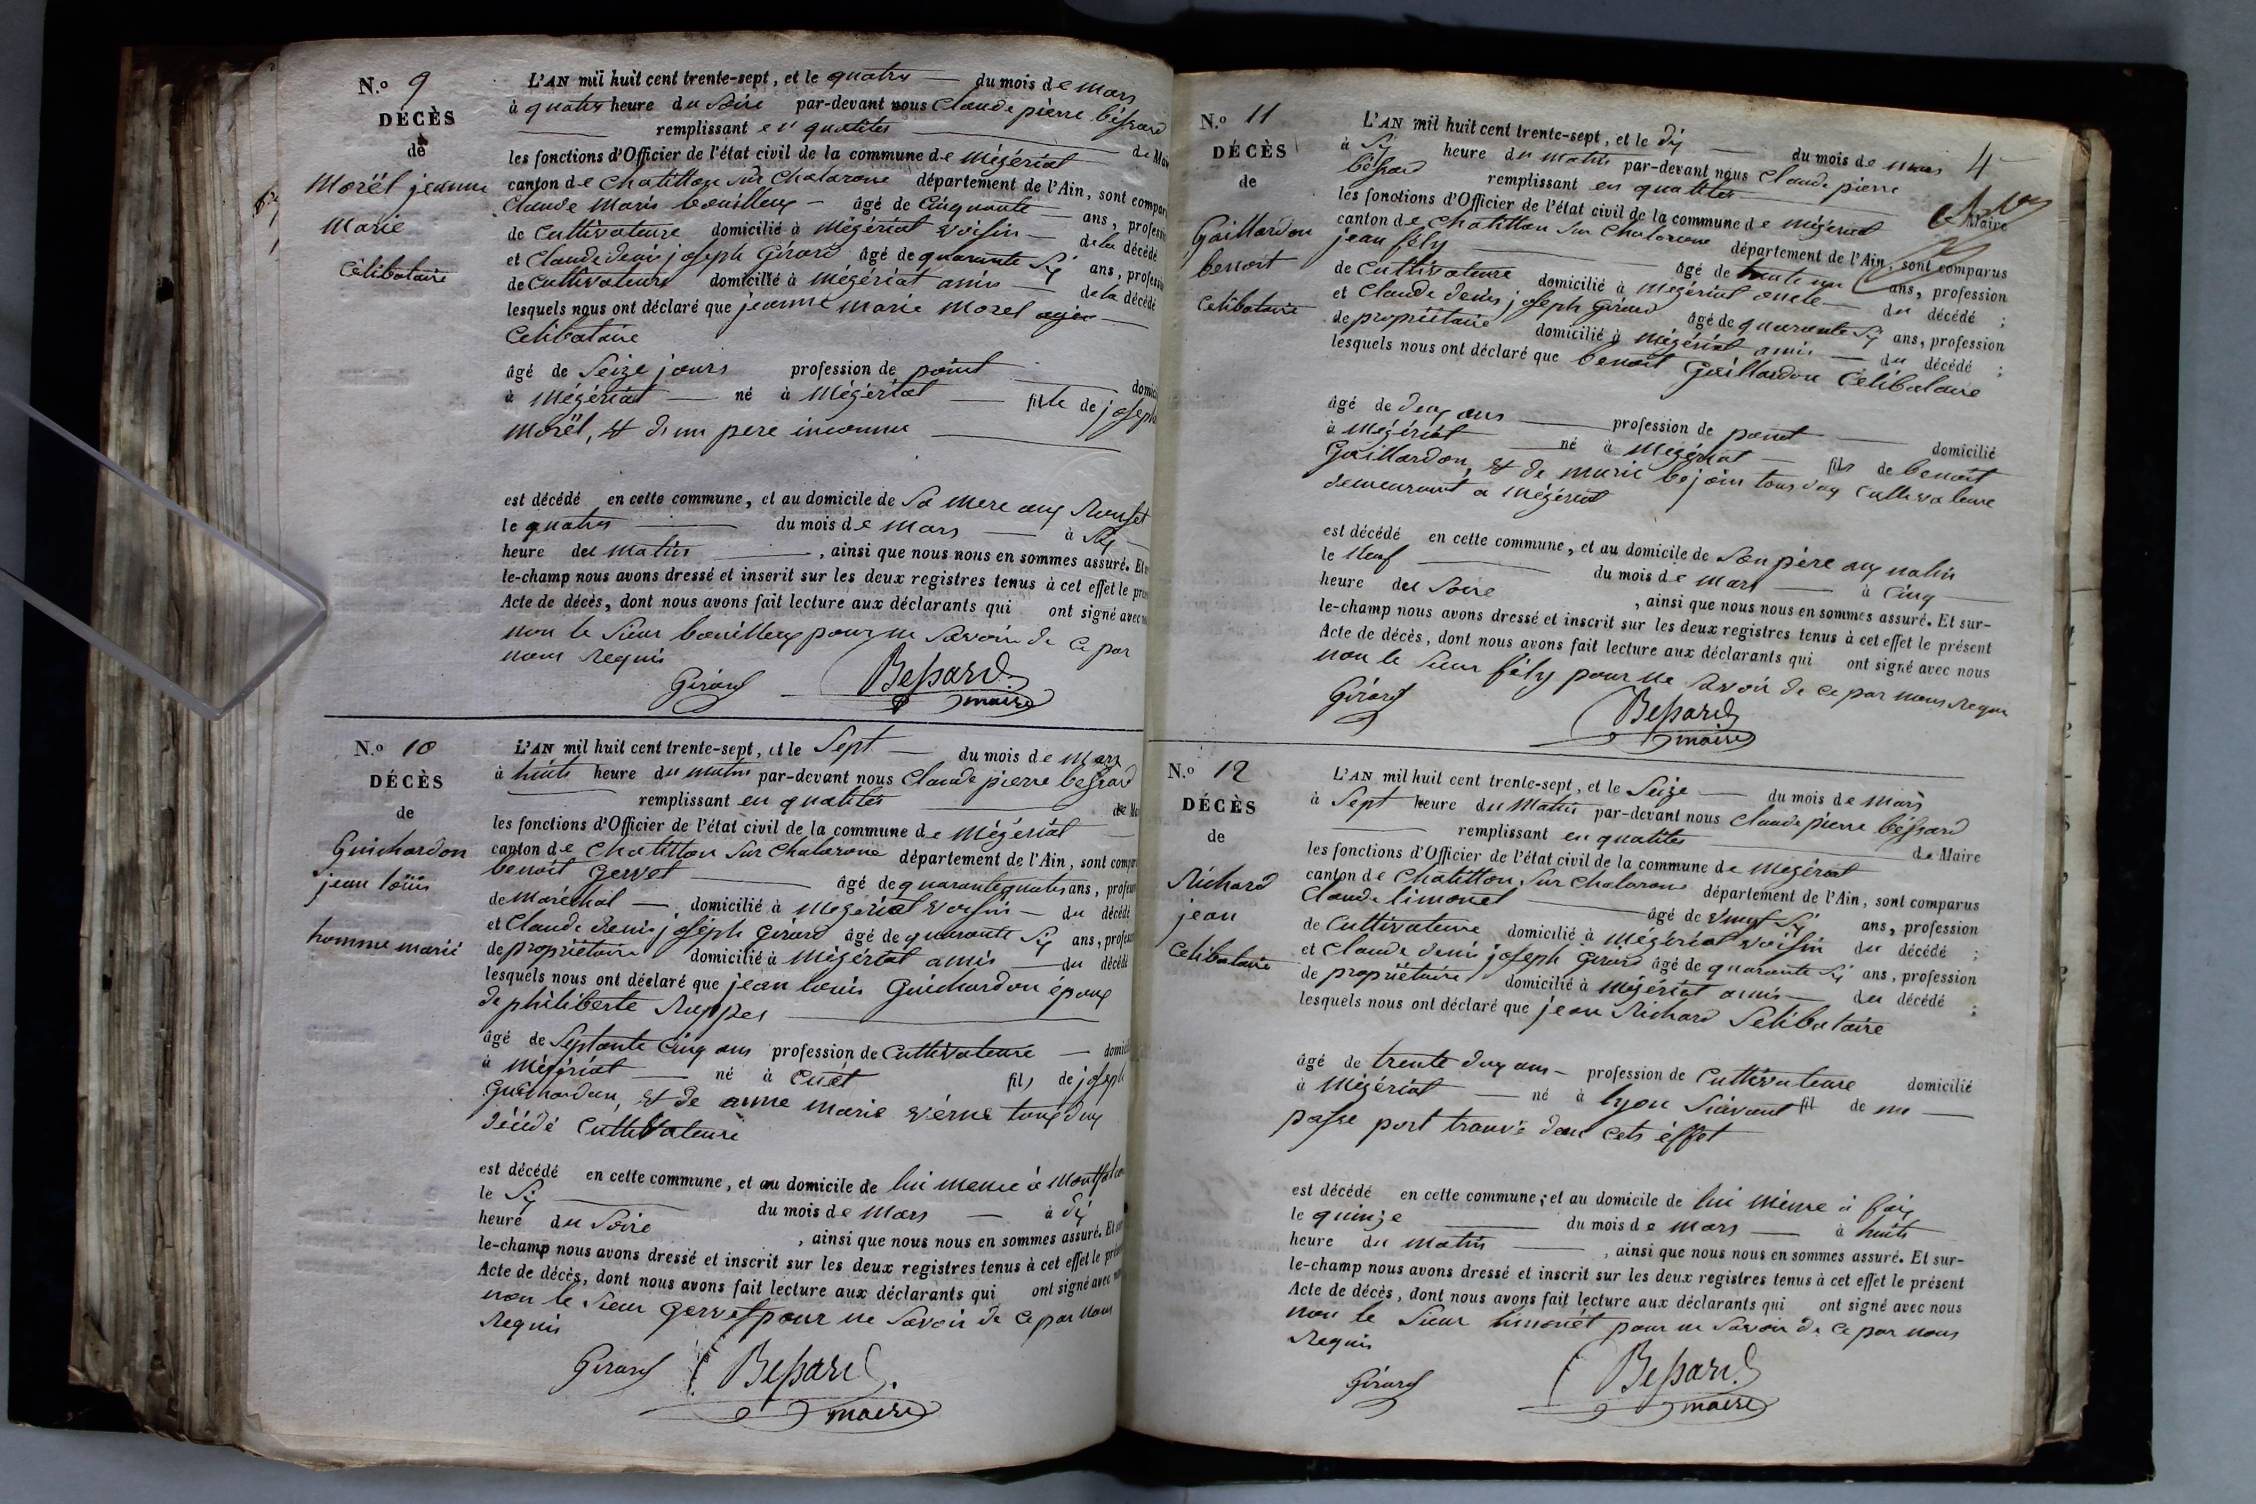 N.º 9
DÉCÈS
de
Morël jeanne
Marie
Célibataire
L'AN mil huit cent trente-sept, et le quatre du mois de Mars
à quatre heure du Soire par-devant nous Claude pièrre béssard
remplissant en qualites de Mai
les fonctions d'Officier de l'état civil de la commune de Mégériat
canton de Chatillon sur Chalarone département de l'Ain, sont compar
Claude Marie bouilloux âgé de Cinquante ans, profess
de Cultivateure domicilié à Mégériat voisin de la décédé
et Claude denis joseph Girard âgé de quarante Six ans, profess
de Cultivateure domicilié à Mégériat amis de la décédé
lesquels nous ont déclaré que jeanne Marie Morel
Celibataire
âgé de Seize jours profession de point domici
à Mégériat né à Mégériat fille de joseph
Morël, et d'un pere inconnu
est décédé en cette commune, et au domicile de Sa mere aux
le quatre du mois de Mars à Six
heure du Matin , ainsi que nous nous en sommes assuré. Et
le-champ nous avons dressé et inscrit sur les deux registres tenus à cet effet le pré
Acte de décès, dont nous avons fait lecture aux déclarants qui ont signé avec n
non le Sieur bouilloux pour ne Savoir de ce par
nous Requis
Girard Bessard
maire
N.º 10
DÉCÈS
de
Guichardon
jean loüis
homme marié
L'AN mil huit cent trente-sept, et le Sept du mois de Mars
à huits heure du matin par-devant nous Claude pierre bessard
remplissant en qualites de Ma
les fonctions d'Officier de l'état civil de la commune de Mégériat
canton de Chatillon Sur Chalarone département de l'Ain, sont compa
benoit Gervet âgé de quarante quatre ans, profess
de Maréchal domicilié à Mégériat voisin du décédé
et Claude denis joseph Girard âgé de quarante Six ans, profess
de propriétaire domicilié à Mégériat amis du décédé
lesquels nous ont déclaré que jean louis Guichardon époux
de philiberte
âgé de Septante Cinq ans profession de Cultivateure domici
à Mégériat né à Cuét fils de joseph
Guichardon, et de anne marie vérne tous dux
décédé Cultivateure
est décédé en cette commune, et au domicile de lui meme à Montfalcon
le Six du mois de Mars à dix
heure du Soire , ainsi que nous nous en sommes assuré. Et sur
le-champ nous avons dressé et inscrit sur les deux registres tenus à cet effet le prése
Acte de décès, dont nous avons fait lecture aux déclarants qui ont signé avec n
non le Sieur Gervet pour ne Savoir de ce par nous
Requis
Girard Bessard
maire
N.º 11
DÉCÈS
de
Gaillardon
benoit
Celibataire
4
L'AN mil huit cent trente-sept, et le dix du mois de mars
à Six heure du matin par-devant nous Claude pierre
béssard remplissant en qualites Maire
les fonctions d'Officier de l'état civil de la commune de Mégériat
canton de Chatillon Sur Chalarone département de l'Ain, sont comparus
jean fély âgé de trente un ans, profession
de Cultivateure domicilié à Mégériat oncle du décédé ;
et Claude denis joseph Girard âgé de quarante Six ans, profession
de propriétaire domicilié à Mégériat amis du décédé ;
lesquels nous ont déclaré que benoit Gaillardon Célibataire
âgé de dux ans profession de point domicilié
à Mégériat né à Mégériat fils de benoit
Gaillardon, et de marie béjoin tous dux Cultivateure
demeurant a Mégériat
est décédé en cette commune, et au domicile de Son père aux
le Neuf du mois de Mars à Cinq
heure du Soire , ainsi que nous nous en sommes assuré. Et sur-
le-champ nous avons dressé et inscrit sur les deux registres tenus à cet effet le présent
Acte de décès, dont nous avons fait lecture aux déclarants qui ont signé avec nous
non le Sieur fély pour ne Savoir de ce par nous Requis
Girard Bessard
maire
N.º 12
DÉCÈS
de
Richard
jean
Celibataire
L'AN mil huit cent trente-sept, et le Seize du mois de mars
à Sept heure du Matin par-devant nous Claude pierre béssard
remplissant en qualites de Maire
les fonctions d'Officier de l'état civil de la commune de Mégériat
canton de Chatillon Sur Chalarone département de l'Ain, sont comparus
Claude limonet âgé de vingt Six ans, profession
de Cultivateure domicilié à Mégériat voisin du décédé ;
et Claude denis joseph Girard âgé de quarante Six ans, profession
de propriétaire domicilié à Mégériat amis du décédé ;
lesquels nous ont déclaré que jean Richard Selibataire
âgé de trente dux ans profession de Cultivateure domicilié
à Mégériat né à lyon Suivant fil de un
passe port trouvé dans cets éffet
est décédé en cette commune, et au domicile de lui même à fay
le quinze du mois de Mars à huits
heure du matin , ainsi que nous nous en sommes assuré. Et sur-
le-champ nous avons dressé et inscrit sur les deux registres tenus à cet effet le présent
Acte de décès, dont nous avons fait lecture aux déclarants qui ont signé avec nous
non le Sieur limonét pour ne Savoir de ce par nous
Requis
Girard Bessard
maire